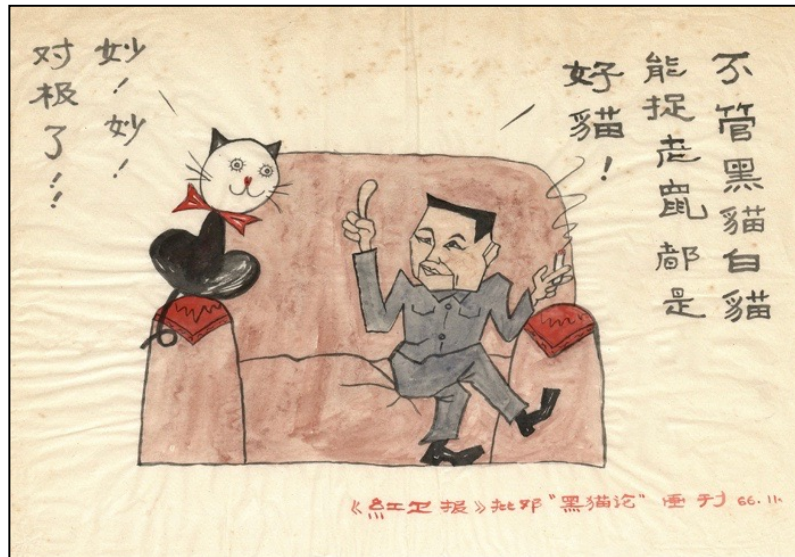 不管黑貓白貓
能捉老鼠都是
好貓！
妙！妙！
对极了！！
《紅卫报》批邓"黑猫论"画刊 66.11.